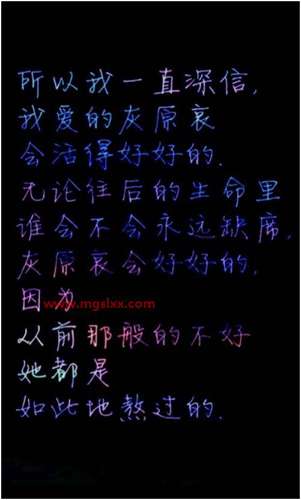 所以我一直深信,
我爱的灰原哀
会活得好好的.
无论往后的生命里
谁会不会永远缺席,
灰原哀会好好的,
因为
www.mgslxx.com
从前那般的不好
她都是
如此地熬过的.